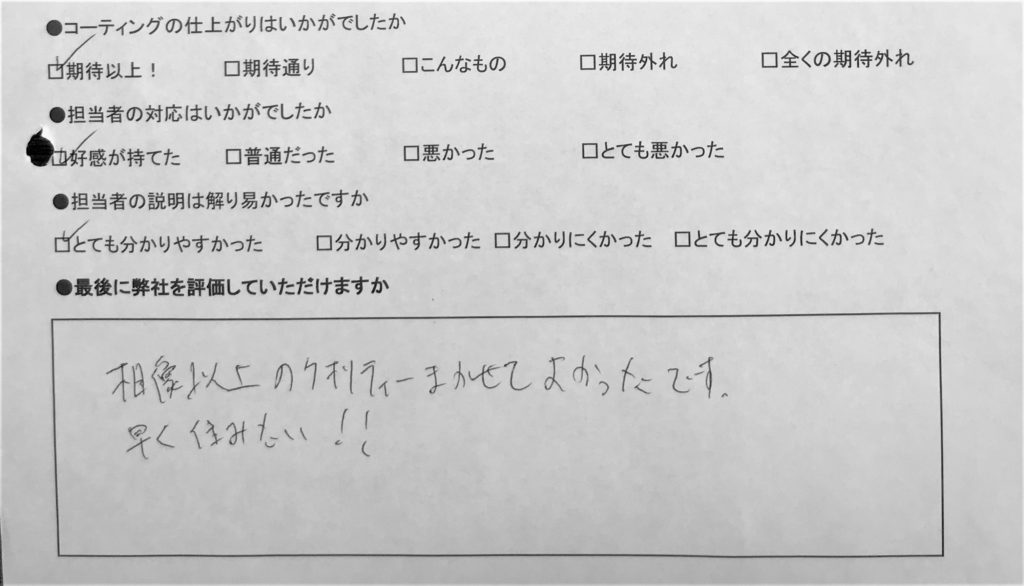 ●コーティングの仕上がりはいかがでしたか
☑期待以上！ □期待通り □こんなもの □期待外れ □全くの期待外れ
●担当者の対応はいかがでしたか
☑好感が持てた □普通だった □悪かった □とても悪かった
●担当者の説明は解り易かったですか
☑とても分かりやすかった □分かりやすかった □分かりにくかった □とても分かりにくかった
●最後に弊社を評価していただけますか
相像以上のクオリティーまかせてよかったです。
早く住みたい!!